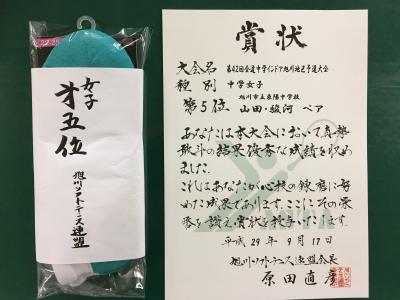 22-25
女子
才五位
旭川ソフトテニス連盟
賞状
大会名 第42回全道中学インドア旭川地区予選大会
種別 中学女子
旭川市立東陽中学校
第5位 山田・駿河 ペア
あなたは本大会において真摯
敢斗の結果優秀な成績を収め
ました
これはあなたが心技の錬磨に努
めた成果であります。ここにその栄
誉を讃え賞状を授与いたします
平成 29年 9月 17日
旭川ソフトテニス連盟会長
原田直彦